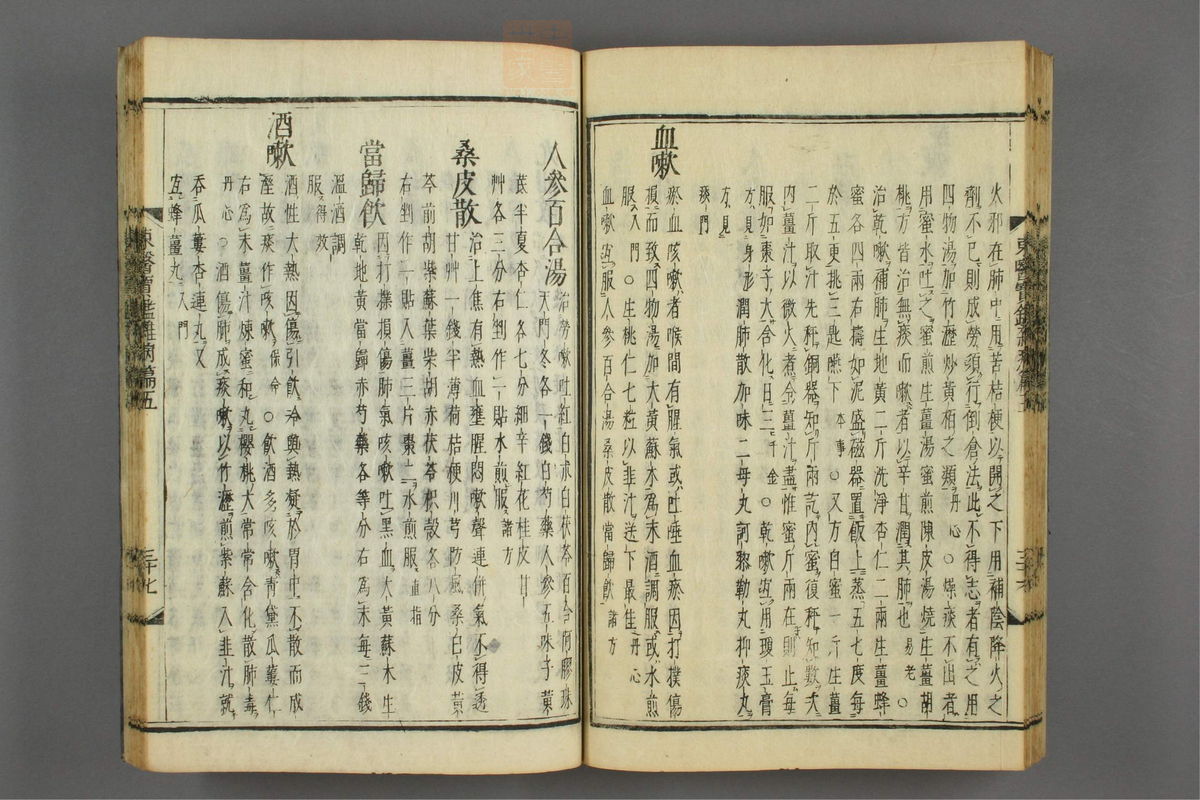 火邪在肺中用苦桔梗以開之下用補陰降火之
劑不已則成勞須行倒倉法此不得志者有之用
四物湯加竹瀝炒黃栢之類丹心○燥痰不出者
用蜜水吐之蜜煎生薑湯蜜煎陳皮湯燒生薑胡
桃方皆治無痰而嗽者以辛甘潤其肺也易老○
治乾嗽補肺生地黃二斤洗淨杏仁二兩生薑蜂
蜜各四兩右擣如泥盛磁器置飯上蒸五七度每
於五更挑三匙嚥下本事○又方白蜜一斤生薑
二斤取汁先秤銅器知斤兩訖內蜜復秤知數次
內薑汁以微火煮令薑汁盡惟蜜斤兩在則止每
服如棗子大含化日三千金○乾嗽宜用瓊玉膏
方見身形潤肺散加味二母丸訶黎勒丸抑痰丸
方見
痰門
血嗽
瘀血咳嗽者喉間有腥氣或吐唾血瘀因打撲傷
損而致四物湯加大黃蘇木爲末酒調服或水煎
服入門○生桃仁七粒以韭汁送下最佳丹心
血嗽宜服人參百合湯桑皮散當歸飮諸方
人參百合湯
治勞嗽吐紅白朮白茯苓百合阿膠珠
天門冬各一錢白芍藥人參五味子黃
芪半夏杏仁各七分細辛紅花桂皮甘
艸各三分右剉作一貼水煎服諸方
桑皮散
治上焦有熱血壅腥悶嗽聲連倂氣不得透
甘艸一錢半薄荷桔梗川芎防風桑白皮黃
芩前胡柴蘇葉柴胡赤茯苓枳殼各八分
右剉作一貼入薑三片棗二水煎服直指
當歸飮
因打撲損傷肺氣咳嗽吐黑血大黃蘇木生
乾地黃當歸赤芍藥各等分右爲末每二錢
溫酒調
服得效
酒嗽
酒性大熱因傷引飮冷與熱凝於胃中不散而成
溼故痰作咳嗽保命○飮酒多咳嗽靑黛瓜蔞仁
右爲末薑汁煉蜜和丸櫻桃大常常含化散肺毒
丹心○酒傷肺成痰嗽以竹瀝煎紫蘇入韭汁就
呑瓜蔞杏連丸又
宜蜂薑丸入門
東醫寶鑑雜病篇五
三十九